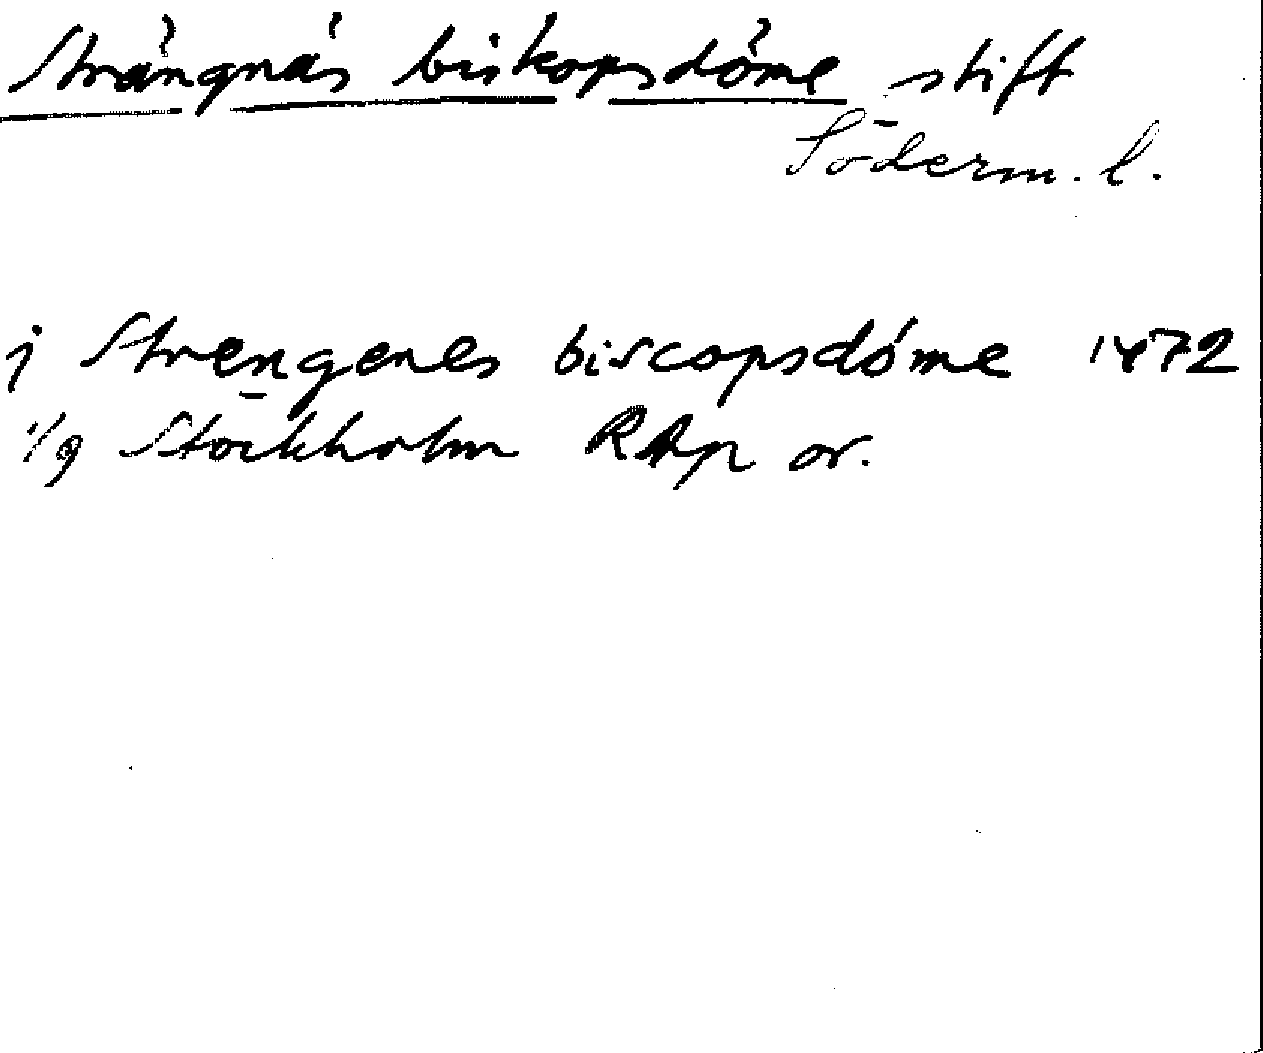 Strängnäs biskopsdöme stift
Söderm. l.
j Strengenes biscopsdóme 1472
1/9 Stockholm RAp or.